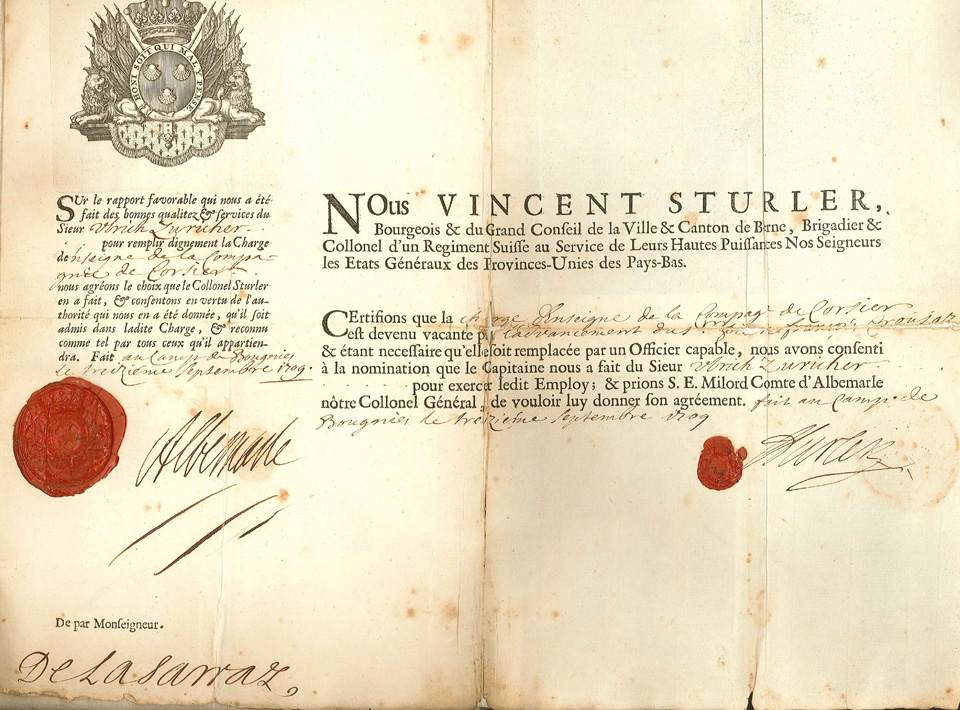 HONI SOIT QUI MAL Y PENSE
SUr le rapport favorable qui nous a été
fait des bonnes qualitez & services du
Sieur Vlrich Zuricher
pour remplir dignement la Charge
denseigne de la Compa-
gnie de Corsier
nous agréons le choix que le Collonel Sturler
en a fait, & consentons en vertu de l'au-
thorité qui nous en a été donnée, qu'il soit
admis dans ladite Charge, & reconnu
comme tel par tous ceux qu'il appartien-
dra. Fait au Camp de Bougnies
le treizieme septembre 1709.
Albemarle
De par Monseigneur.
De Lasarraz,
NOus VINCENT STURLER,
Bourgeois & du Grand Conseil de la Ville & Canton de Berne, Brigadier &
Collonel d'un Regiment Suisse au Service de Leurs Hautes Puissances Nos Seigneurs
les Etats Généraux des Provinces-Unies des Pays-Bas.
CErtifions que la charge denseigne de la Compag. de Corsier
est devenu vacante par l'advancement du
& étant necessaire qu'elle soit remplacée par un Officier capable, nous avons consenti
à la nomination que le Capitaine nous a fait du Sieur Vlrich Zuricher
pour exercer ledit Employ; & prions S. E. Milord Comte d'Albemarle
nôtre Collonel Général, de vouloir luy donner son agréement. fait au Camp de
Bougnies le treizieme septembre 1709
Sturler